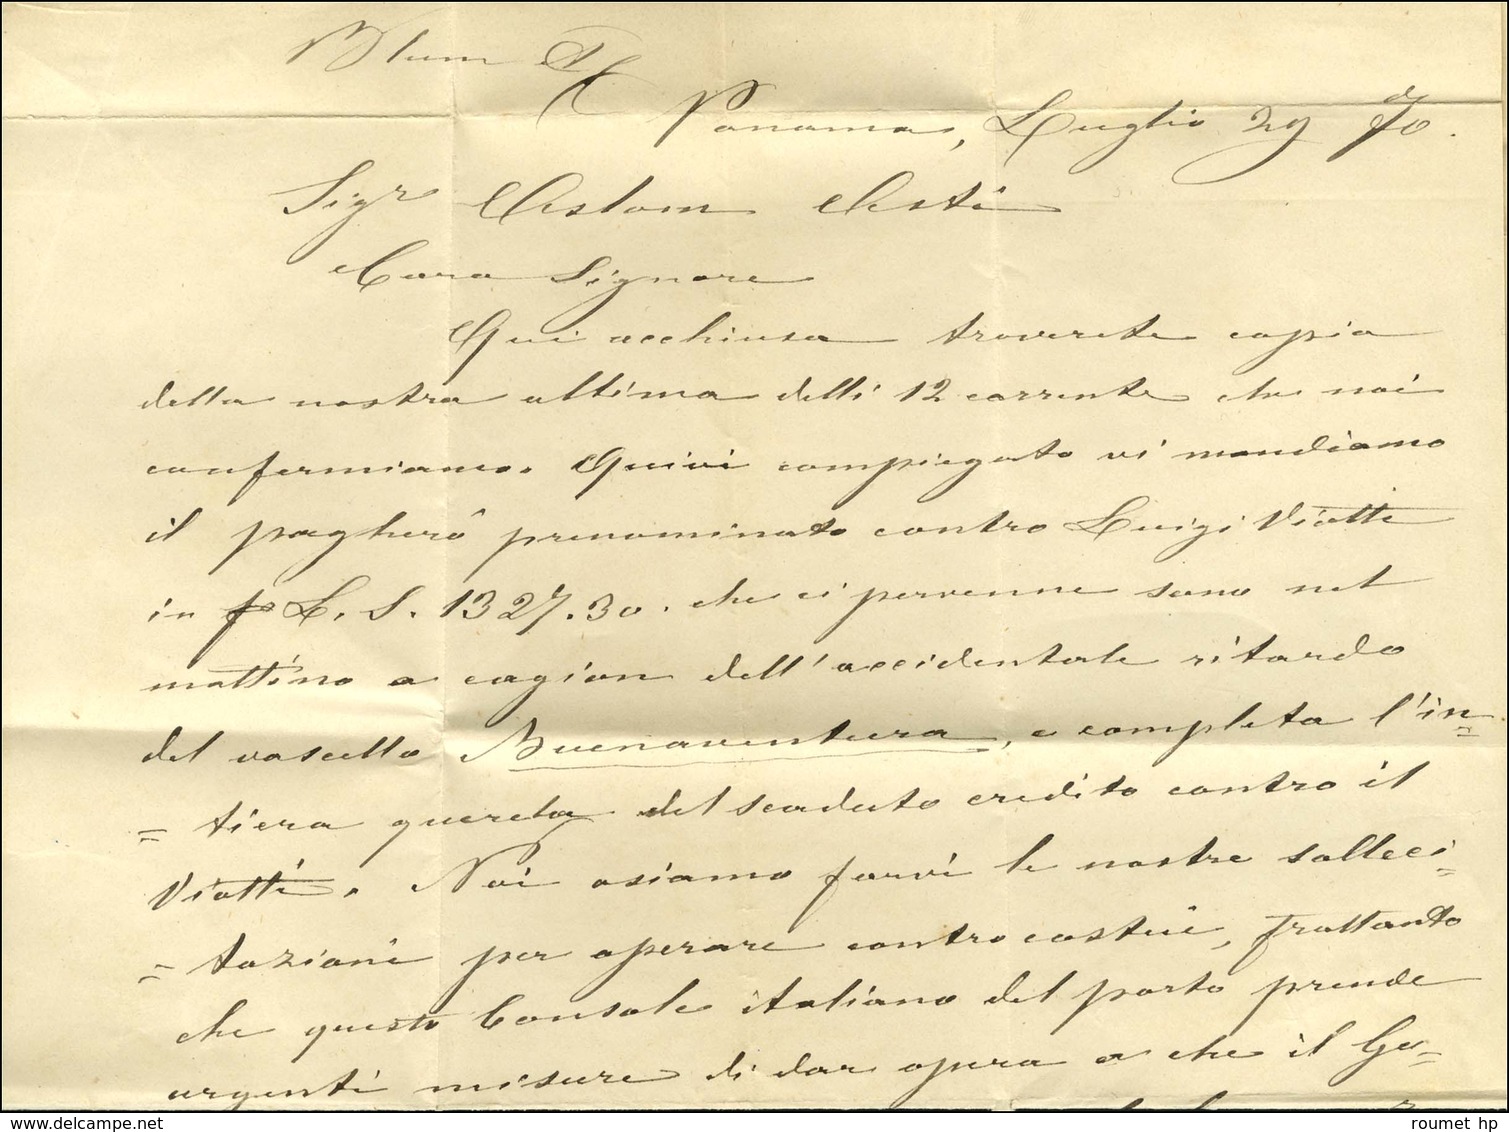 Blum
Panama, Luglio 29 70.
Sigr Astom Asti
Caro Signore
Qui acchiusa troverete copia
della nostra ultima delli 12 corrente che noi
confermiamo. Quivi compiegato vi mandiamo
il pagherô prenominato contro Luigi Viotti
in L. S. 1327.30. che ci pervenne sono nel
mattino a cagion dell'accidentale ritardo
del vascello Buenaventura, e completa l'in=
=tiera querela del scaduto credito contro il
Viotti. Noi osiamo farvi le nostre solleci=
=tazioni per operare contro costui, frattanto
che questo Console italiano del porto prende
urgenti misure di dar opera a che il Go=
roumet hp